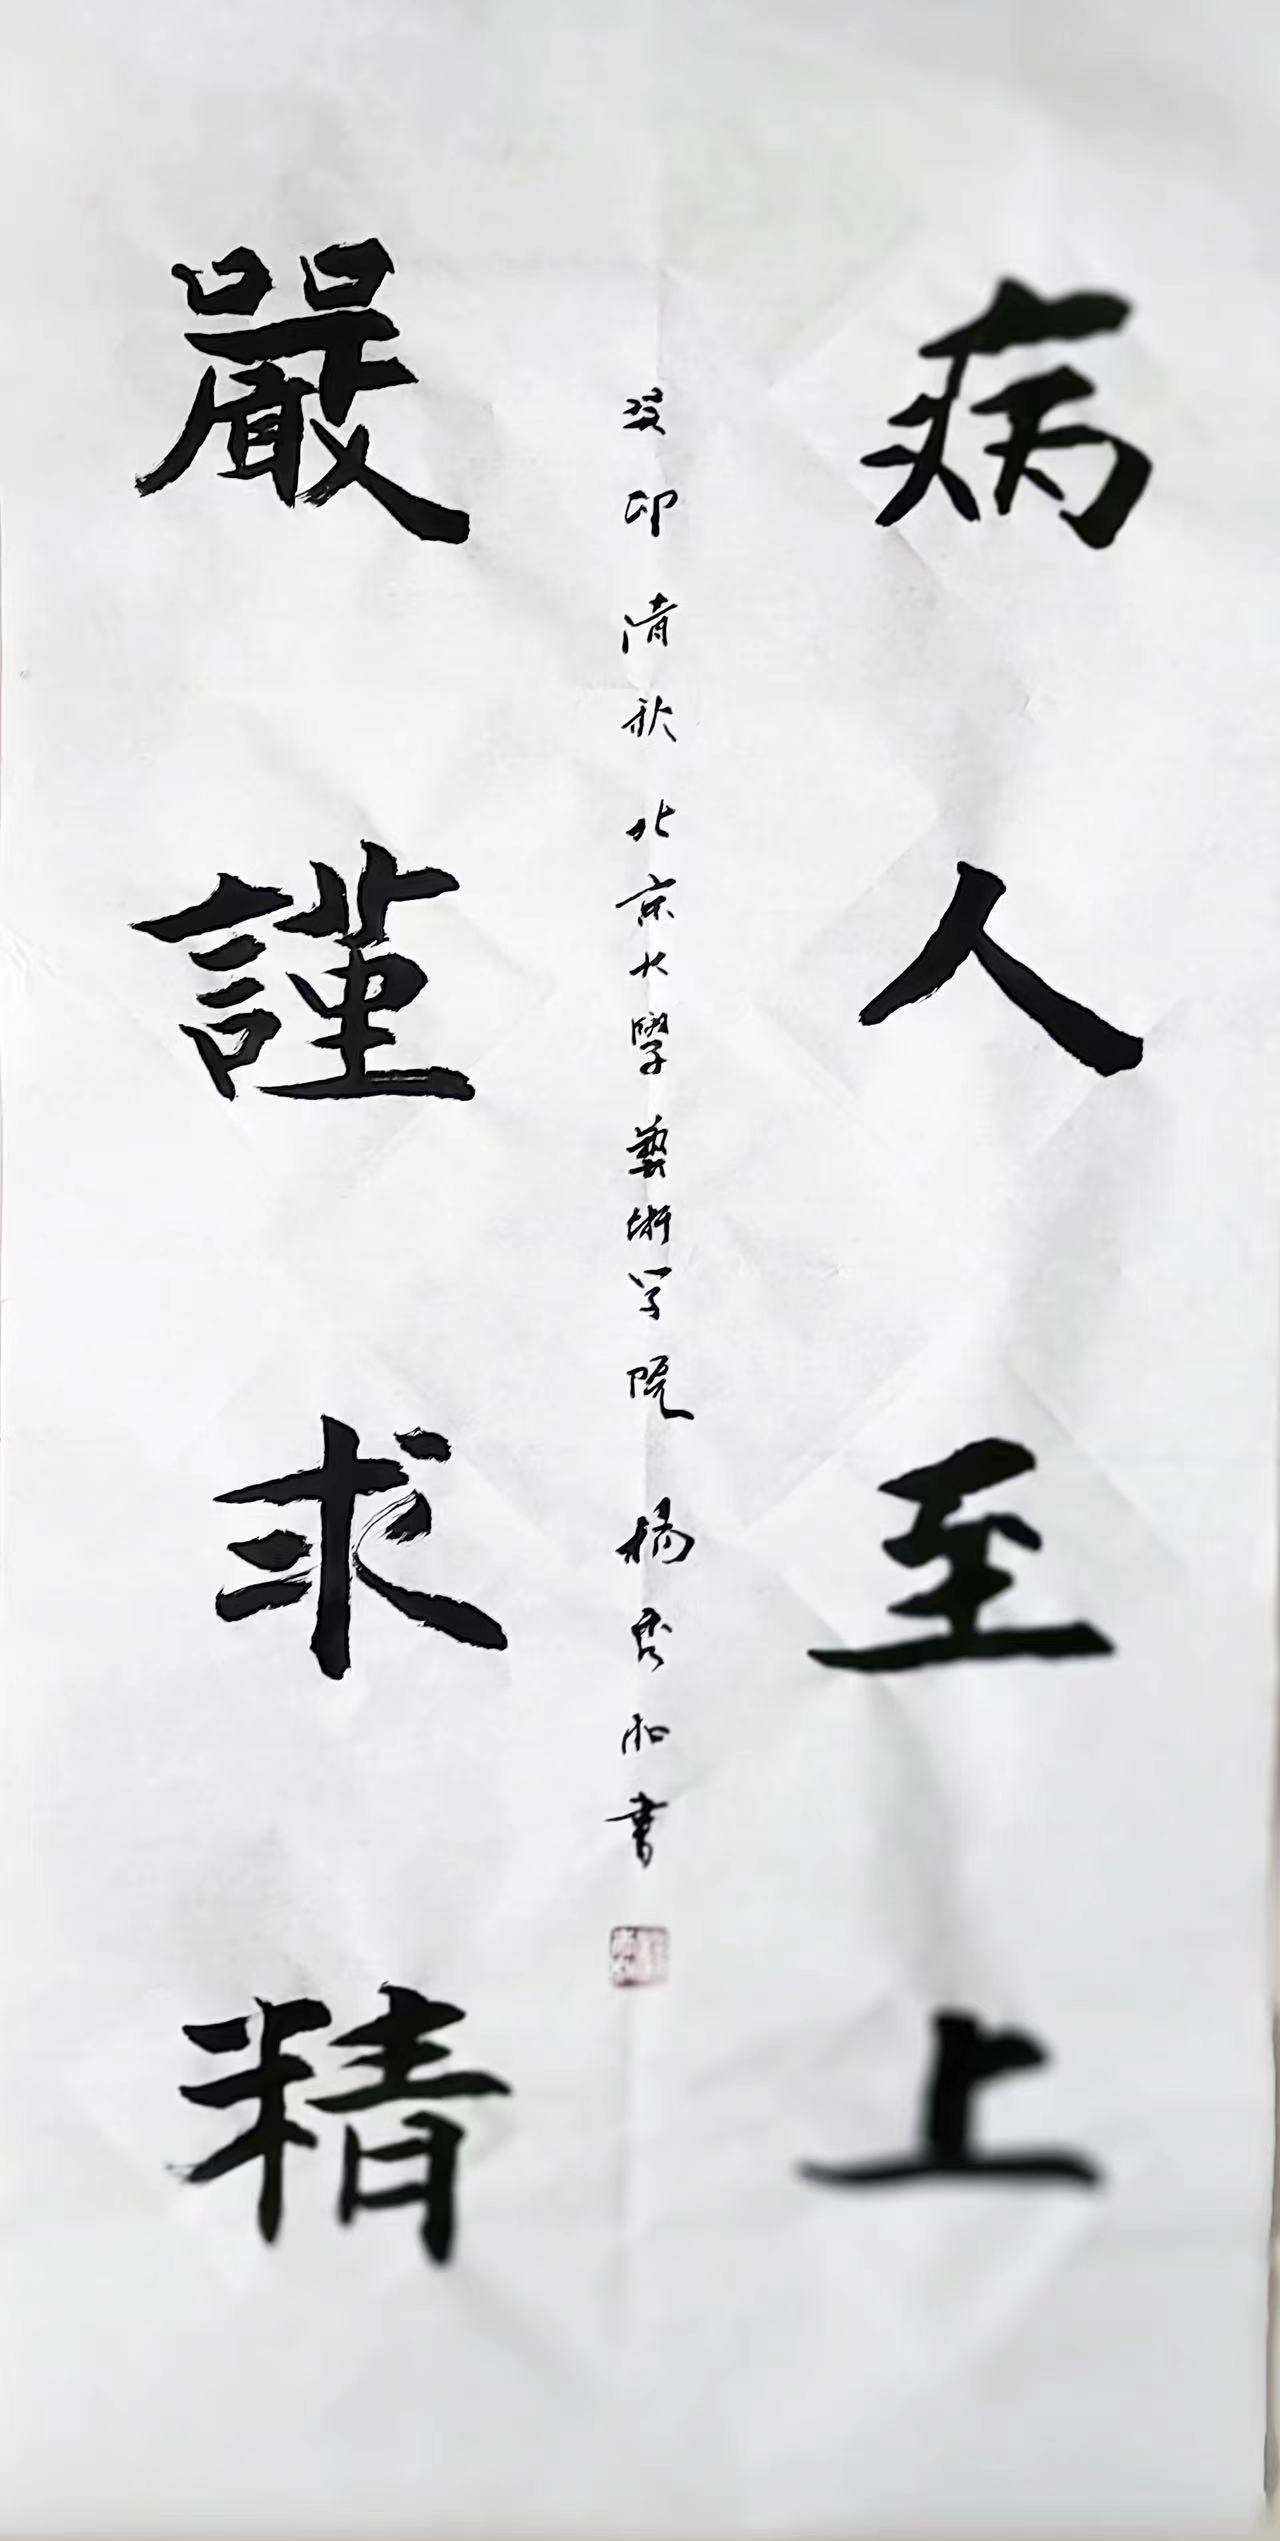 病人至上
癸卯清秋北京大學藝術学院楊秀和書
嚴謹求精